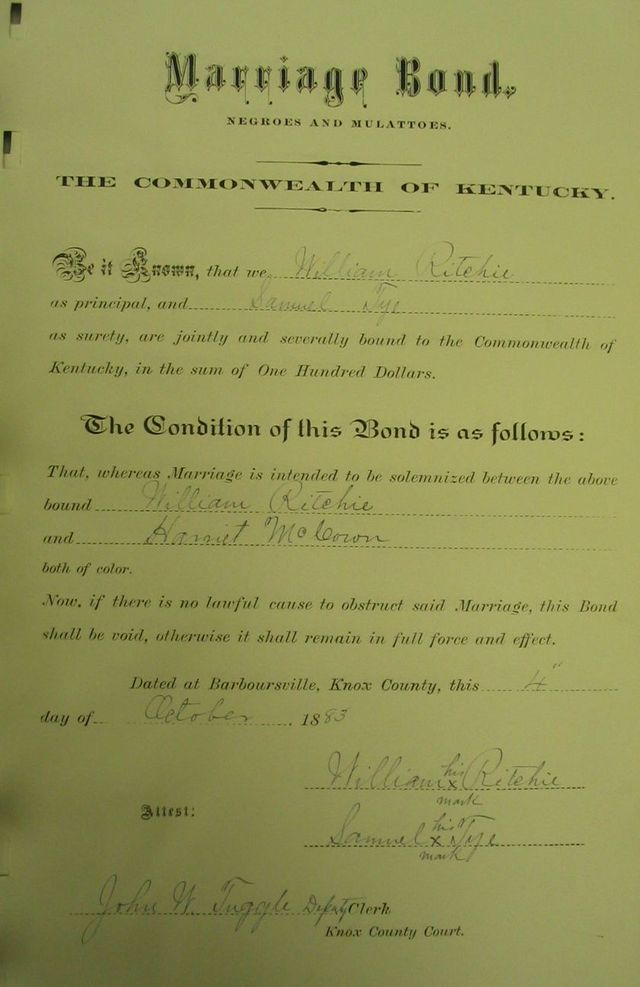 Marriage Bond.
NEGROES AND MULATTOES.
THE COMMONWEALTH OF KENTUCKY.
Be it Known, that we William Ritchie
as principal, and Samuel Tye
as surety, are jointly and severally bound to the Commonwealth of
Kentucky, in the sum of One Hundred Dollars.
The Condition of this Bond is as follows:
That, whereas Marriage is intended to be solemnized between the above
bound William Ritchie
and Harriet McCown
both of color.
Now, if there is no lawful cause to obstruct said Marriage, this Bond
shall be void, otherwise it shall remain in full force and effect.
Dated at Barboursville, Knox County, this 4"
day of October 1883
his
William x Ritchie
mark
Attest:
his
Samuel x Tye
mark
John W. Tuggle Deputy Clerk
Knox County Court.